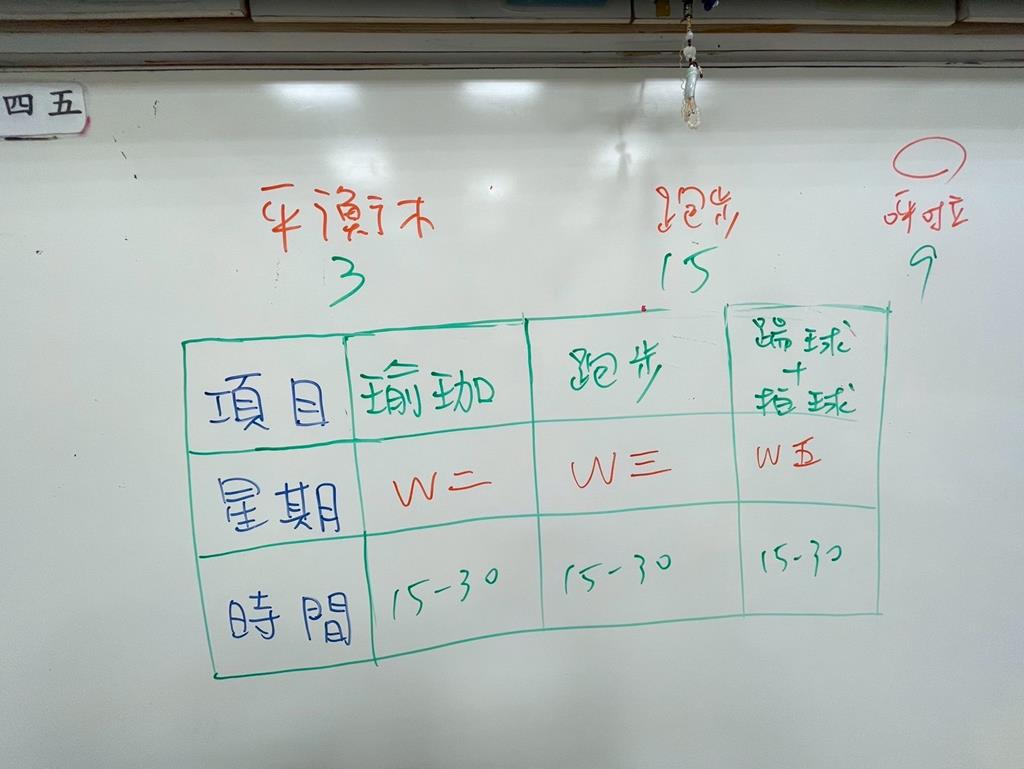 四 五
平衡木 跑步 呼啦
3 15 9
項目 瑜珈 跑步 踢球
+
拍球
星期 W二 W三 W五
時間 15-30 15-30 15-30